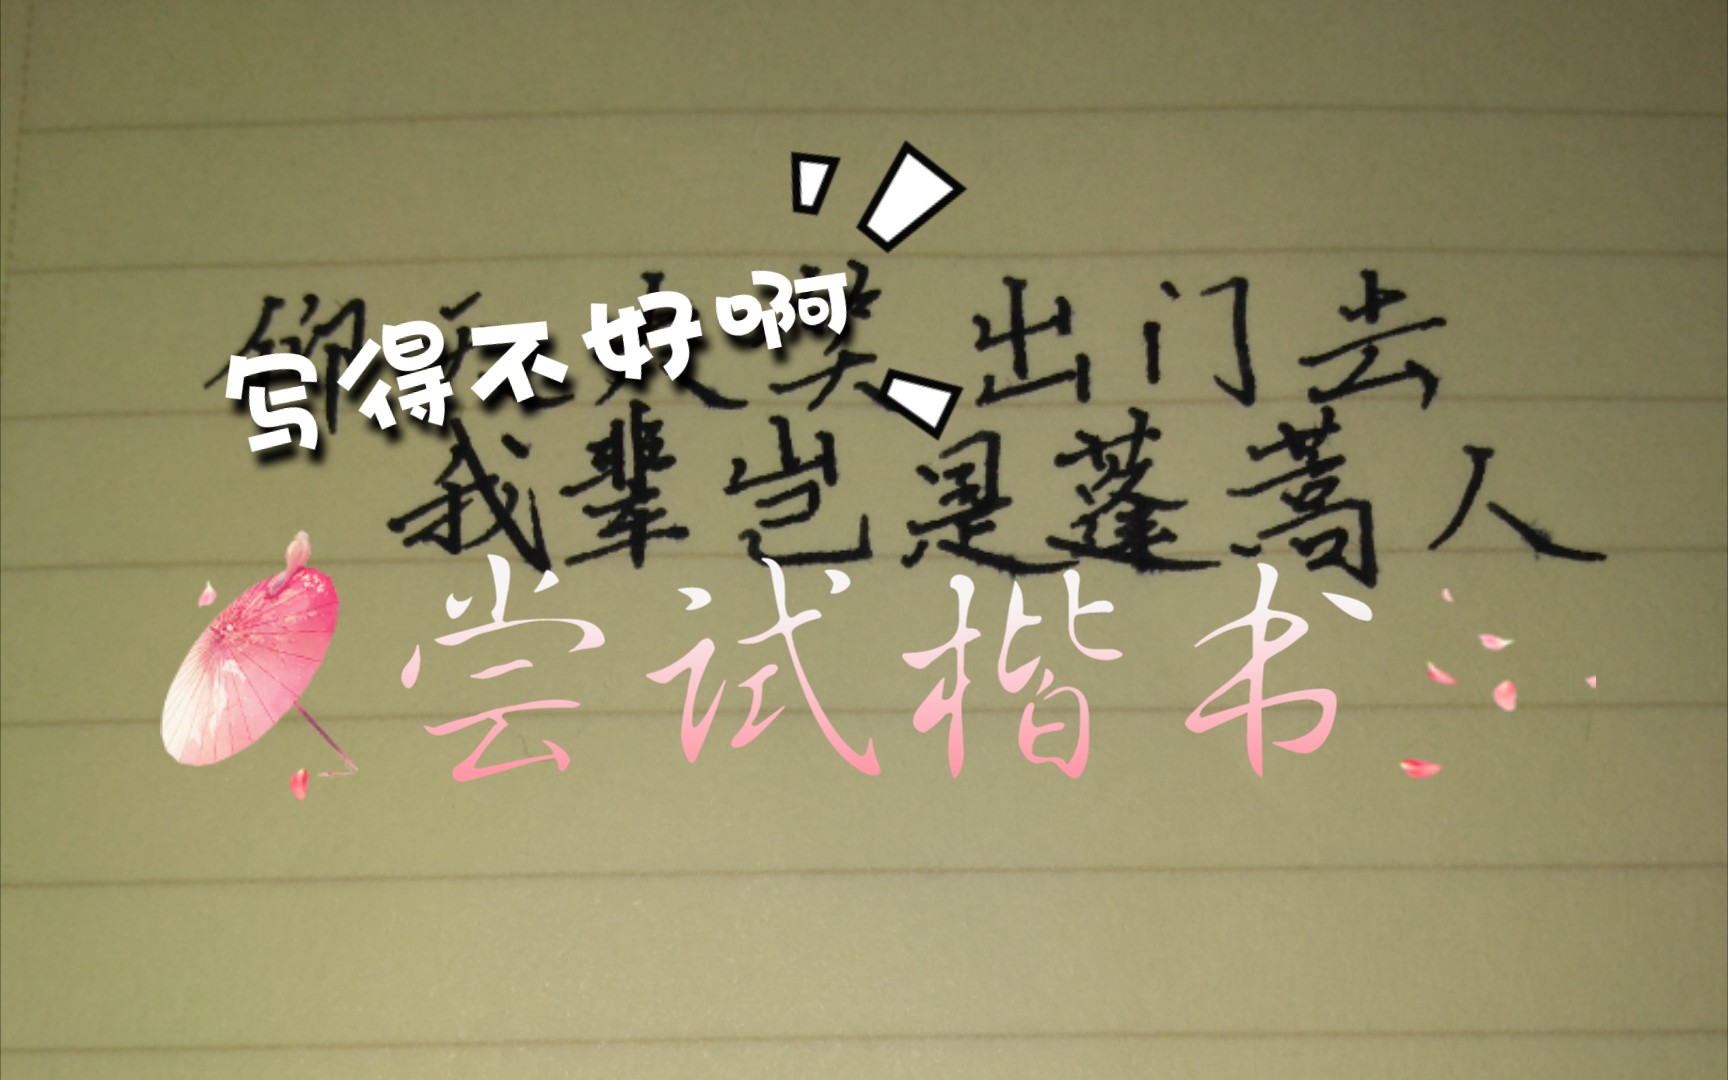 仰天大笑出门去
写得不好啊
我辈岂是蓬蒿人
尝试楷书